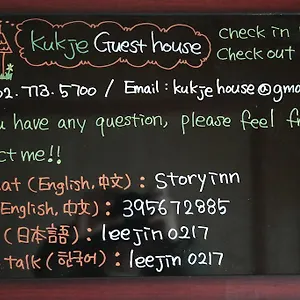 Kukje Guest house
check in
Check out
02.773.5700 / Email : kukjehouse@gma
u have any question, please feel fr
ct me!!
at (English, 中文) : Storyinn
English, 中文) : 395672885
(日本語) : leejin0217
talk (한국어) : leejin0217